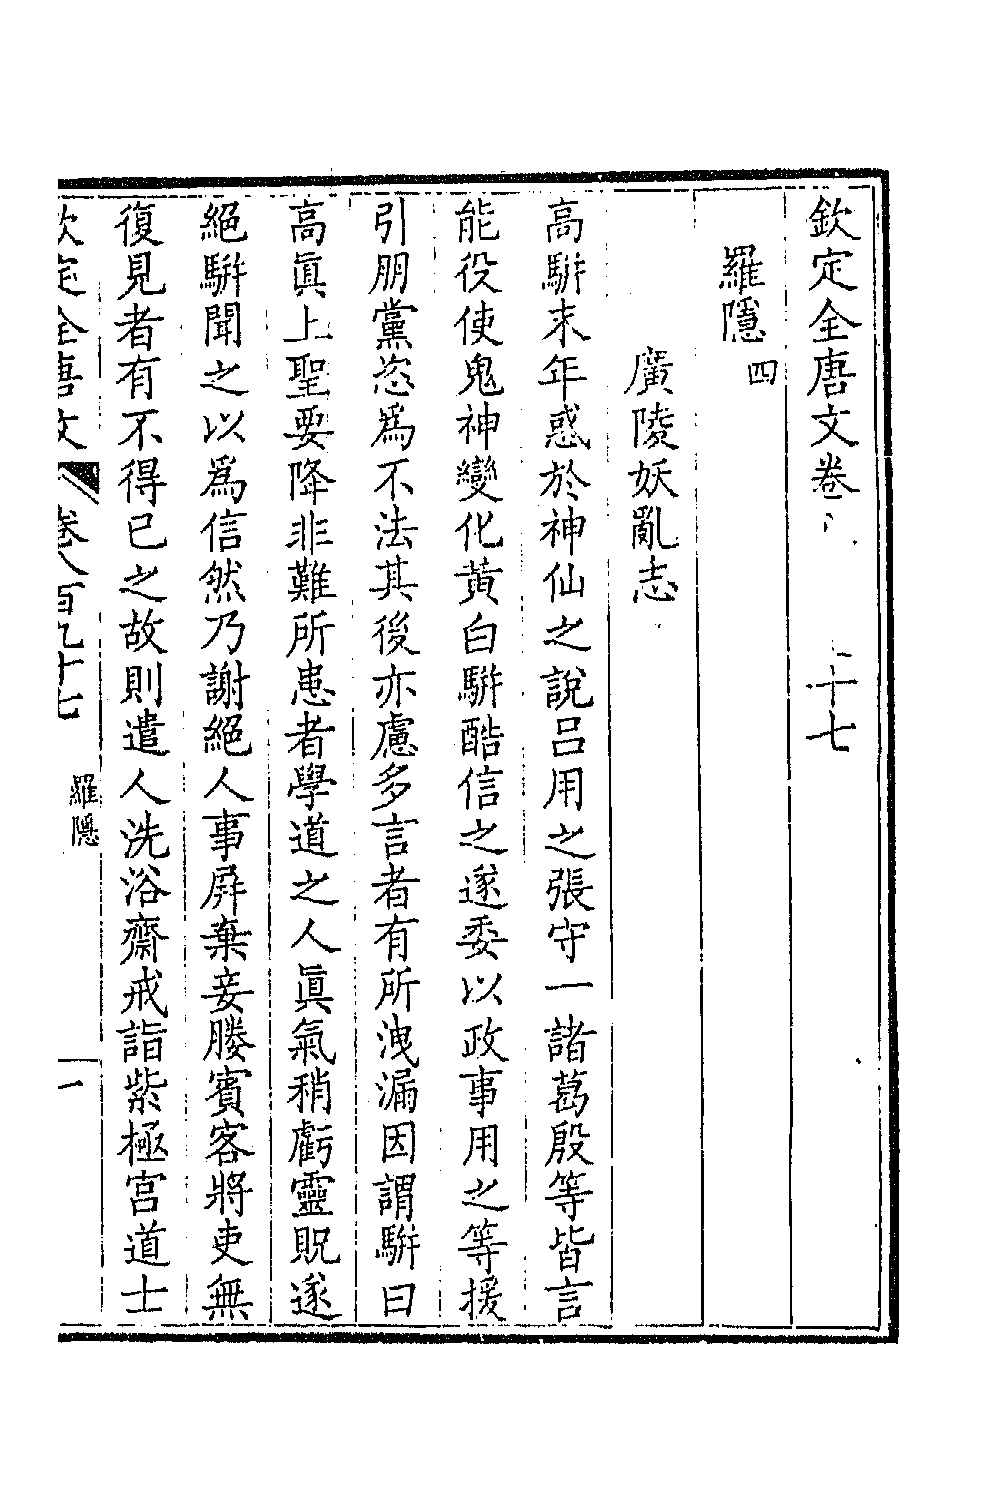 欽定全唐文卷
十七
羅隱四
廣陵妖亂志
高駢末年惑於神仙之說呂用之張守一諸葛殷等皆言
能役使鬼神變化黃白駢酷信之遂委以政事用之等援
引朋黨恣為不法其後亦慮多言者有所洩漏因謂駢曰
高眞上聖要降非難所患者學道之人眞氣稍虧靈貺遂
絕駢聞之以為信然乃謝絕人事屛棄妾媵賓客將吏無
復見者有不得已之故則遣人洗浴齋戒詣紫極宮道士
欽定全唐文 卷八百九十七 羅隱 一